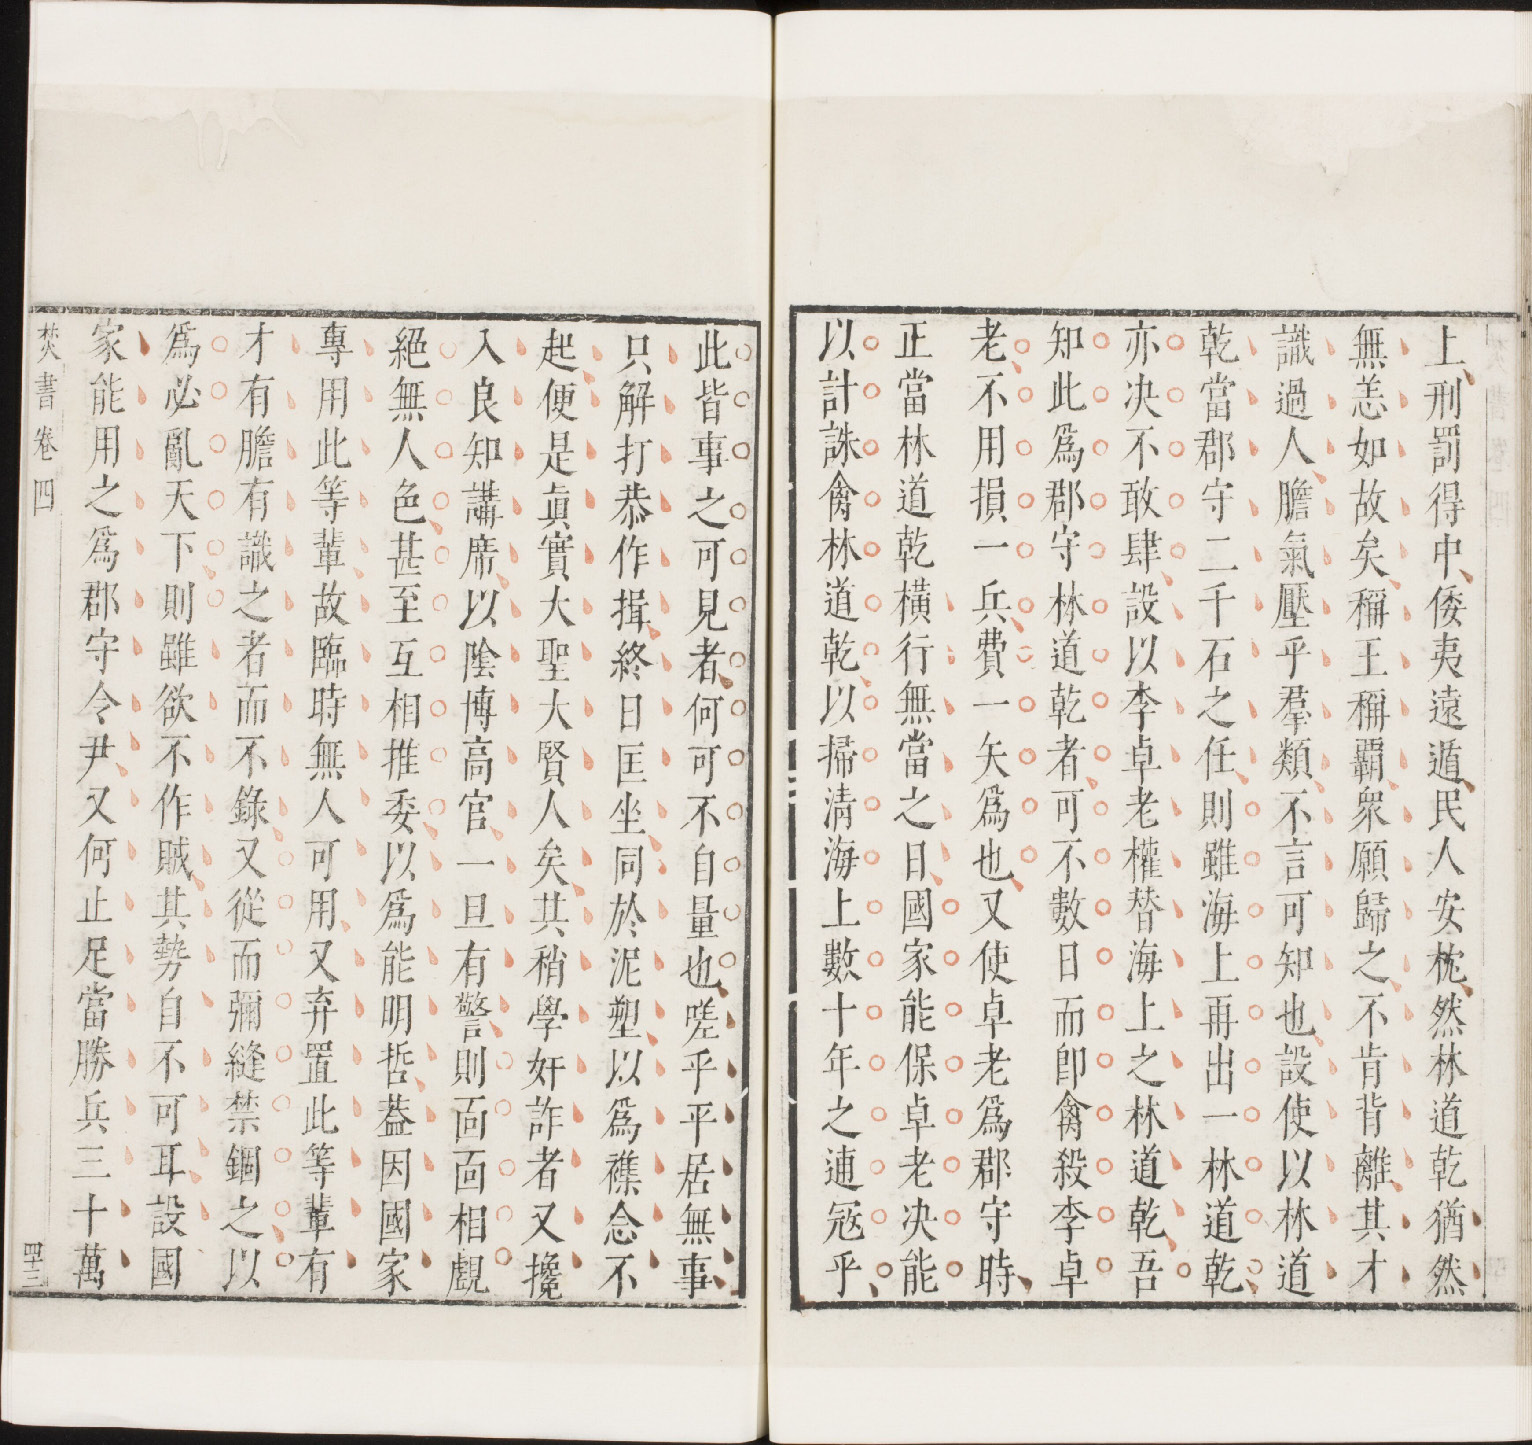 上刑罰得中倭夷遠遁民人安枕然林道乾猶然
無恙如故矣稱王稱霸衆願歸之不肯背離其才
識過人膽氣壓乎羣類不言可知也設使以林道
乾當郡守二千石之任則雖海上再出一林道乾
亦决不敢肆設以李卓老權替海上之林道乾吾
知此爲郡守林道乾者可不數日而卽禽殺李卓
老不用損一兵費一矢爲也又使卓老爲郡守時
正當林道乾橫行無當之日國家能保卓老决能
以計誅禽林道乾以掃清海上數十年之逋寇乎
此皆事之可見者何可不自量也嗟乎平居無事
只解打恭作揖終日匡坐同於泥塑以爲襍念不
起便是眞實大聖大賢人矣其稍學奸詐者又攙
入良知講席以陰博高官一旦有警則面面相覷
絕無人色甚至互相推委以爲能明哲葢因國家
專用此等輩故臨時無人可用又弃置此等輩有
才有膽有識之者而不錄又從而彌縫禁錮之以
爲必亂天下則雖欲不作賊其勢自不可耳設國
家能用之爲郡守令尹又何止足當勝兵三十萬
焚書卷四
四十三